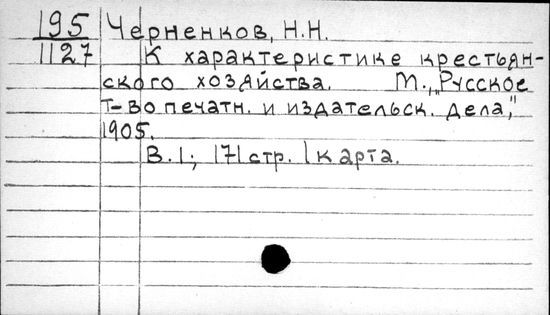 195 Черненков, Н.Н.
1127 К характеристике крестьян-
ского хозяйства. М., „Русское
т-во печатн. и издательск. дела",
1905.
В. 1; 171 стр. 1 карта.